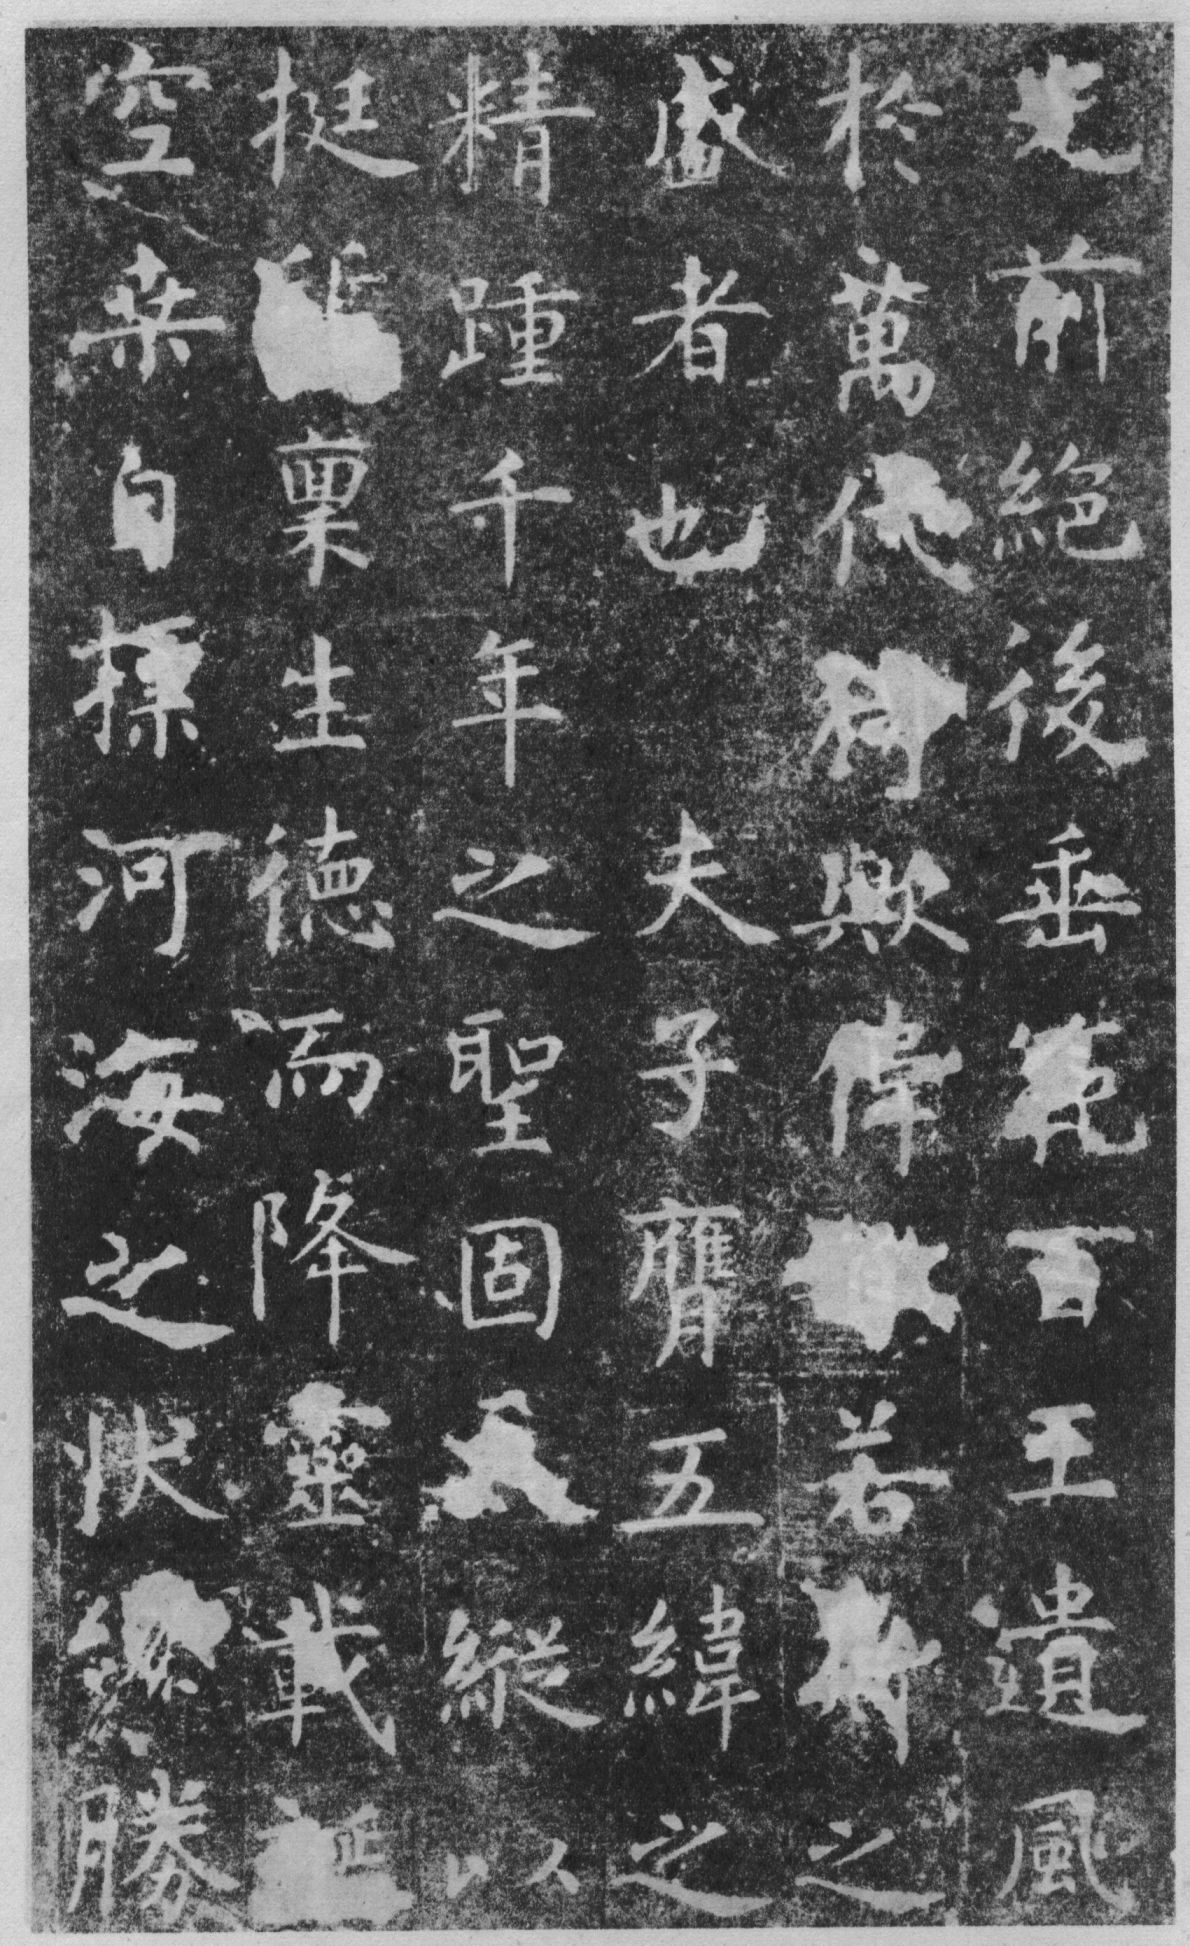 光前絶後垂範百王遺風
於萬代猗歟偉若斯之
盛者也夫子膺五緯之
精踵千年之聖固天縱以
挺質稟生徳而降靈載誕
空桒自標河海之狀纔勝